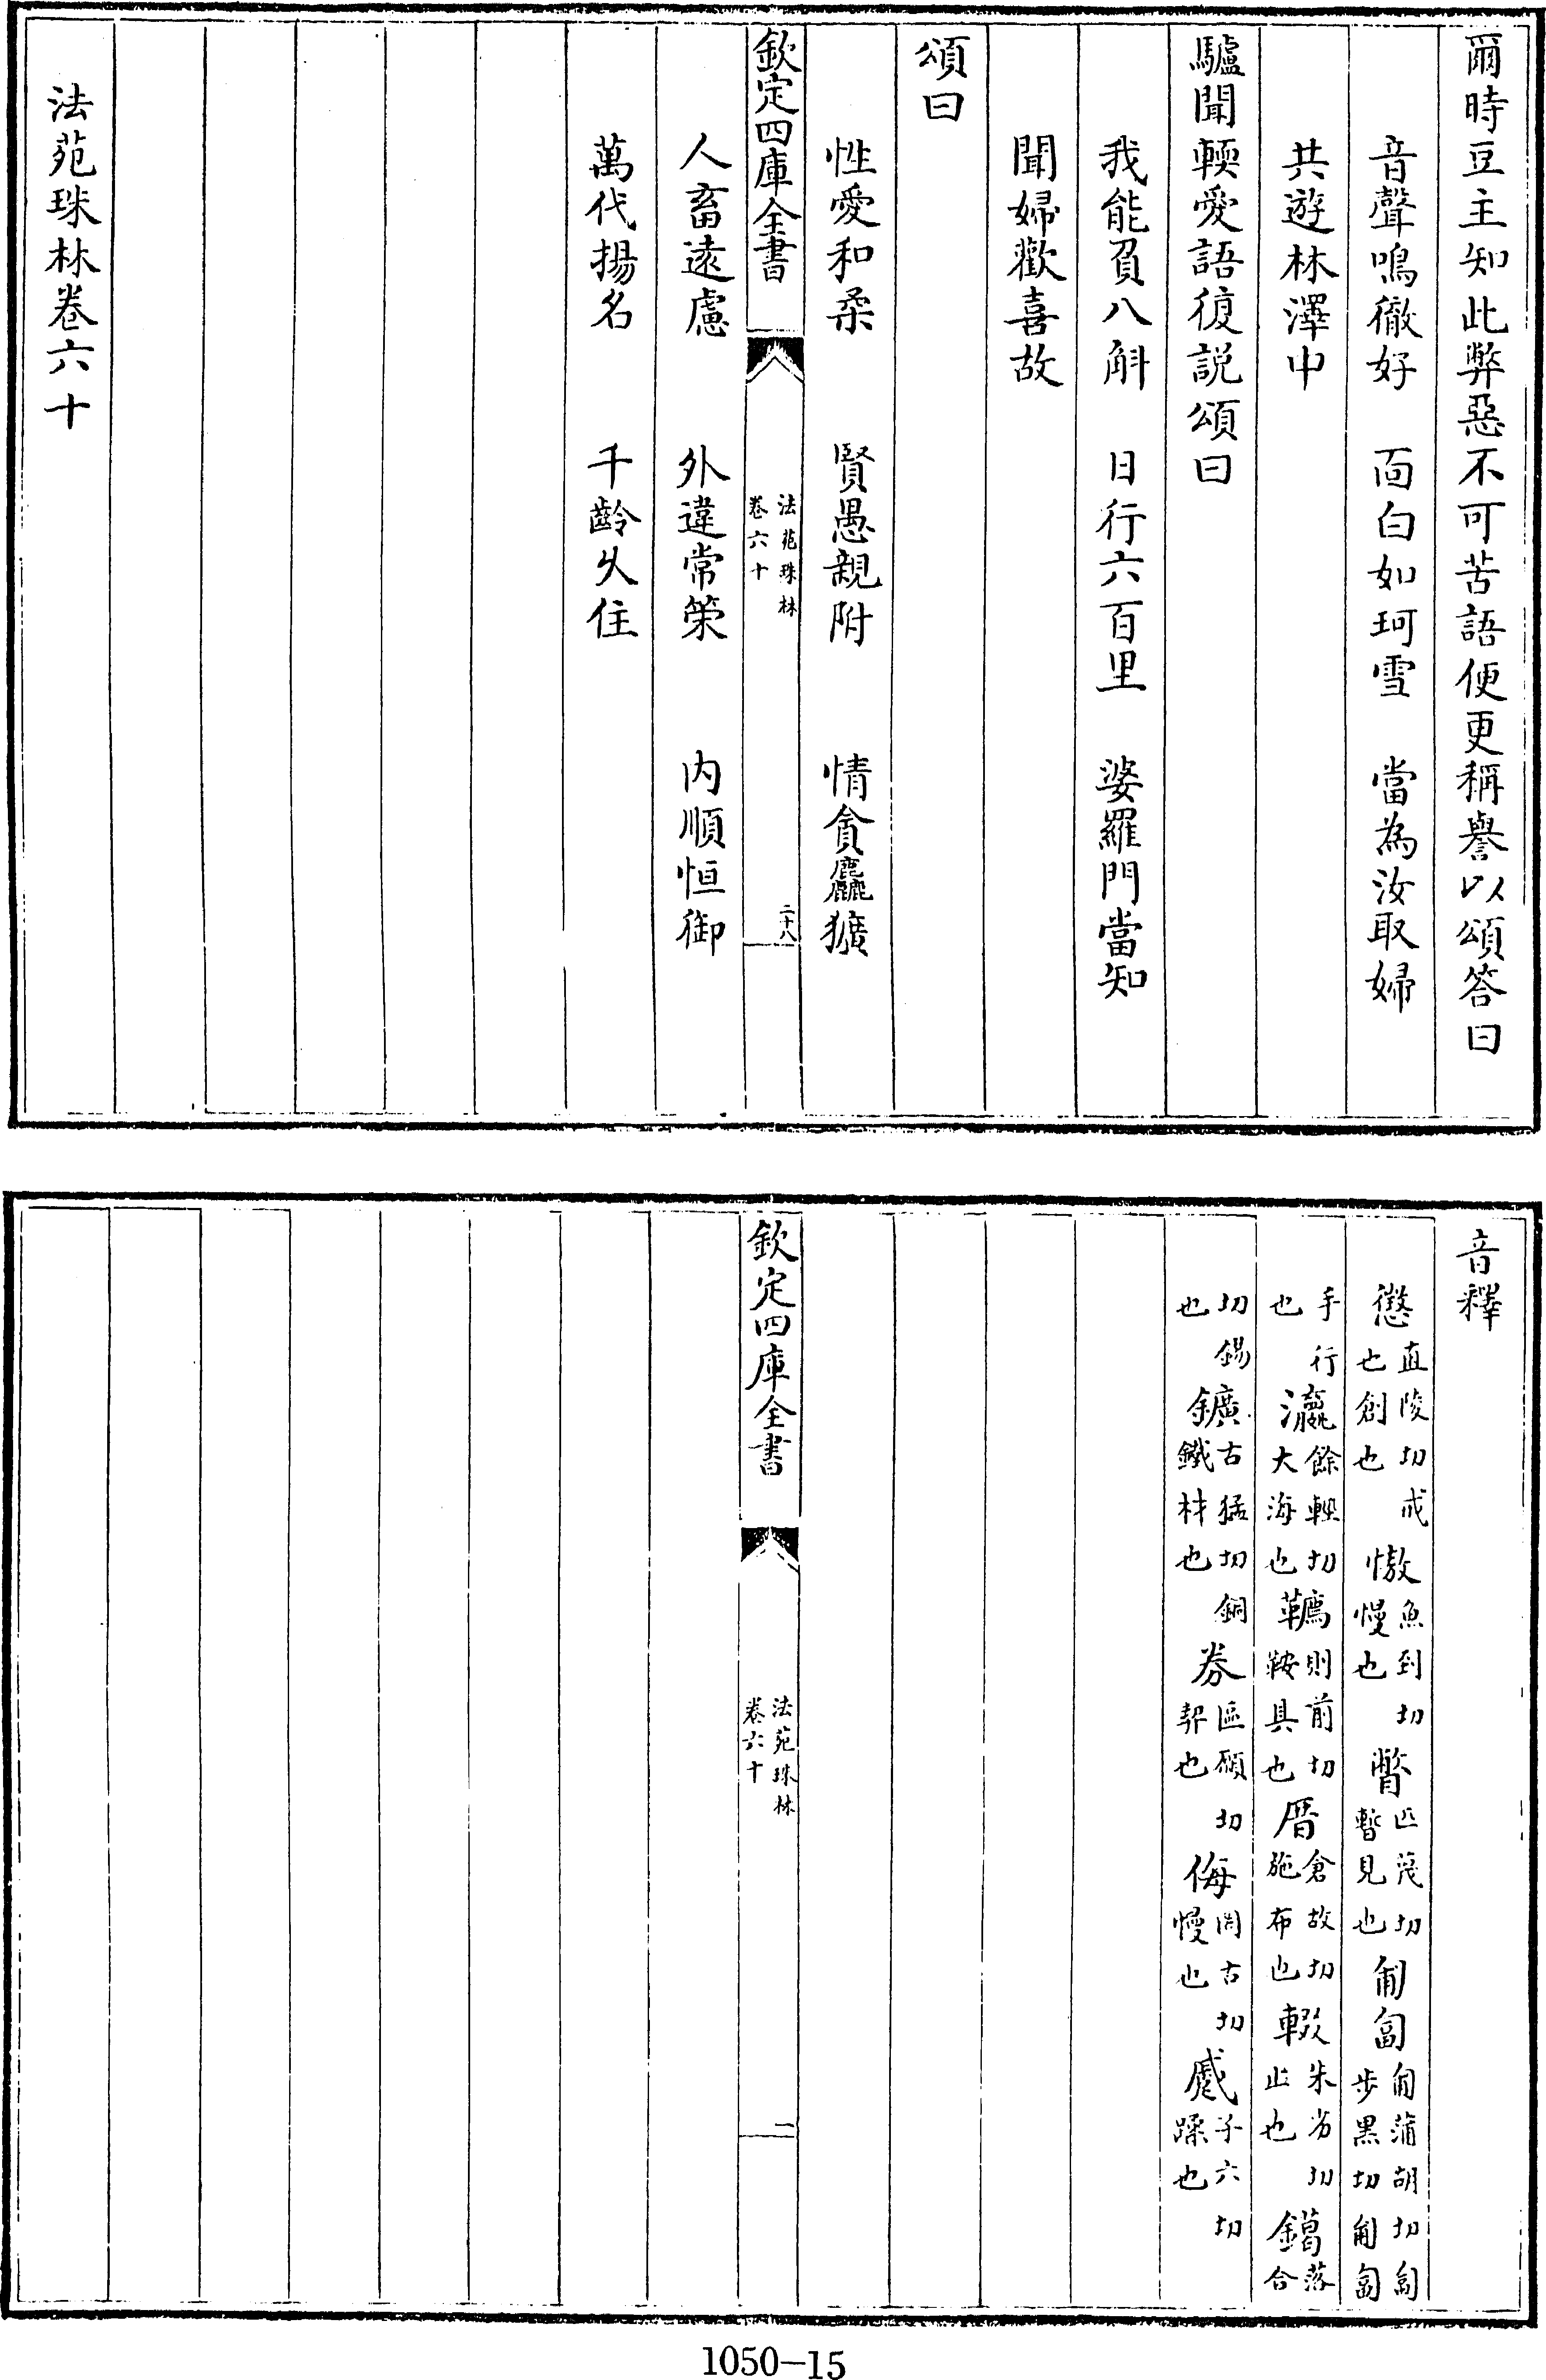 爾時豆主知此弊惡不可苦語便更稱譽以頌答曰
音聲鳴徹好　面白如珂雪　當為汝取婦
共遊林澤中
驢聞軟愛語復説頌曰
我能負八斛　日行六百里　婆羅門當知
聞婦歡喜故
頌曰
性愛和柔　賢愚親附　情貪麤獷
欽定四庫全書
法苑珠林
卷六十
二十八
人畜遠慮　外違常策　内順恒御
萬代揚名　千齡久住
法苑珠林卷六十
音釋
懲直陵切戒也創也 慠魚到切慢也 瞥匹蔑切暫見也 匍匐匍蒲胡切匐步黒切匍匐
手行也 瀛餘輕切大海也 韉則前切鞍具也 厝倉故切施布也 輟朱劣切止也 鑞落合
切錫也 鑛古猛切銅鐵材也 券區願切契也 侮罔古切慢也 蹙子六切蹂也
欽定四庫全書
法苑珠林
卷六十
一
1050-15